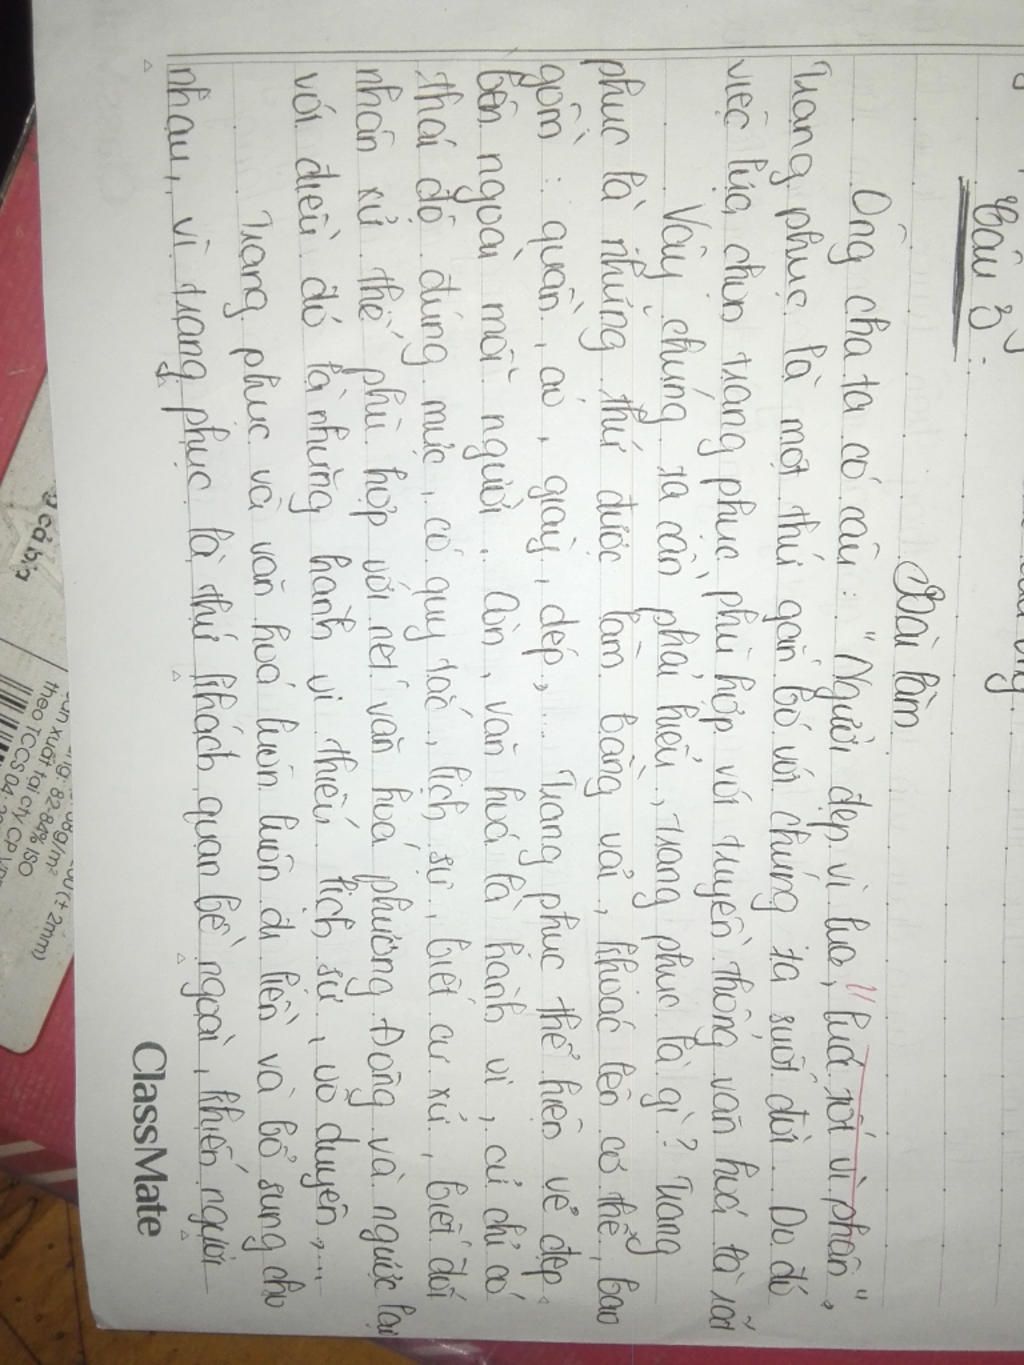 Câu 3:
Bài làm
Ông cha ta có câu: "Người đẹp vì lụa, lúa tốt vì phân".
Trang phục là một thứ gắn bó với chúng ta suốt đời. Do đó
việc lựa chọn trang phục phù hợp với truyền thống văn hoá là rất
Vậy chúng ta cần phải hiểu, trang phục là gì? Trang
phục là những thứ được làm bằng vải, khoác lên cơ thể, bao
gồm: quần, áo, giày, dép,... Trang phục thể hiện vẻ đẹp
bên ngoài mỗi người. Còn, văn hoá là hành vi, cử chỉ có
thái độ đúng mực, có quy tắc, lịch sự, biết cư xử, biết đối
nhân xử thế phù hợp với nét văn hoá phương Đông và ngược lại
với điều đó là những hành vi thiếu lịch sự, vô duyên,...
Trang phục và văn hoá luôn luôn đi liền và bổ sung cho
nhau, vì trang phục là thứ khách quan bề ngoài, khiến người
ClassMate
82g/m²
82-84% ISO
xuất tại cty CP
theo TCCS 04:
(± 2mm)